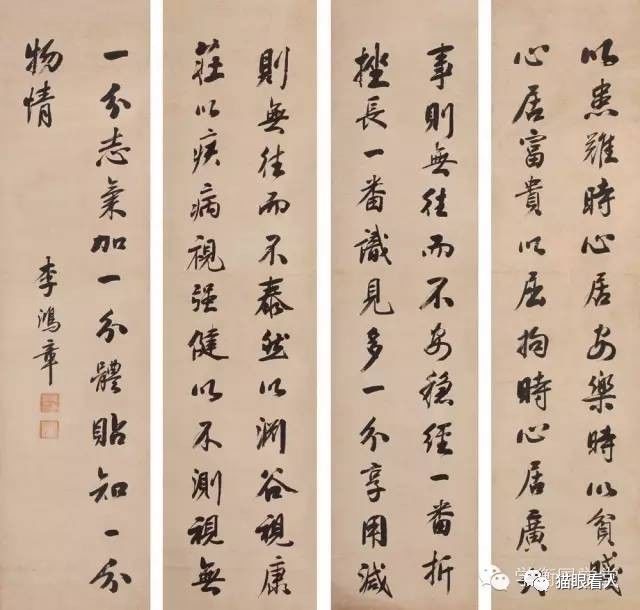 以患難時心居安樂時以貧賤
心居富貴以屈拘時心居廣
事則無往而不安穩經一番折
挫長一番識見多一分享用減
則無往而不泰然以淵谷視康
莊以疾病視强健以不測視無
一分志氣加一分體貼知一分
物情
李鴻章
猫眼看人